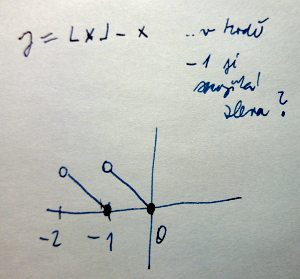 y = ⌊x⌋ - x
..v bodě
-1 je
spojitá
zleva?
-2 -1 0